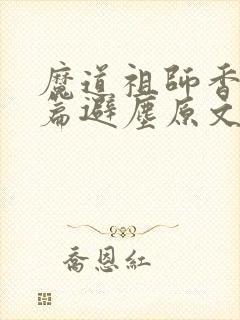 魔道祖師香
篇避塵原文
喬恩紅